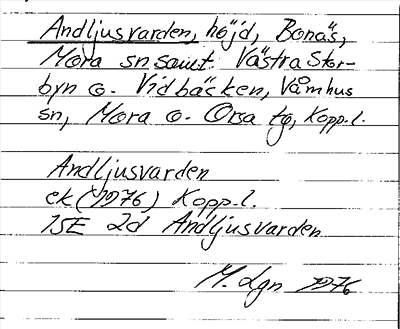 Andljusvarden, höjd, Bonäs,
Mora sn samt Västra Stor-
byn o. Vidbäcken, Våmhus
sn, Mora o. Orsa tg, Kopp. l.
Andljusvarden
ek (1976) Kopp. l.
15E 2d Andljusvarden
M. Lgn 1976